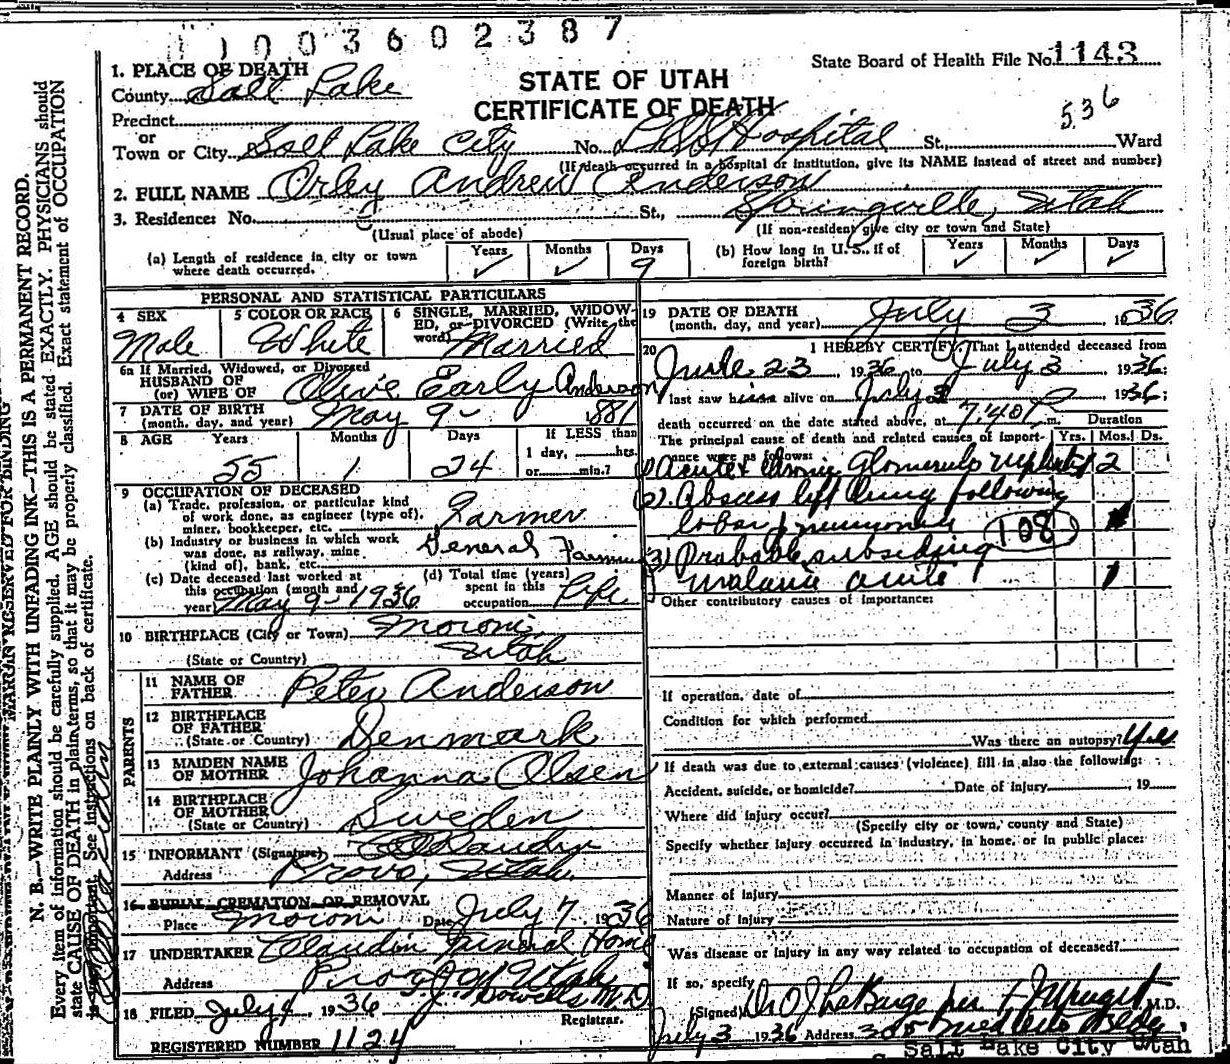 1003602387
State Board of Health File No. 1143
STATE OF UTAH
CERTIFICATE OF DEATH
536
1. PLACE OF DEATH
County Salt Lake
Precinct
or
Town or City Salt Lake City No. L.D.S. Hospital St., Ward
(If death occurred in a hospital or institution, give its NAME instead of street and number)
2. FULL NAME Orley Andrew Anderson
3. Residence: No. St., Springville, Utah
(Usual place of abode) (If non-resident give city or town and State)
(a) Length of residence in city or town where death occurred. Years ✓ Months ✓ Days 9
(b) How long in U. S., if of foreign birth? Years ✓ Months ✓ Days ✓
PERSONAL AND STATISTICAL PARTICULARS
4 SEX Male
5 COLOR OR RACE White
6 SINGLE, MARRIED, WIDOWED, or DIVORCED (Write the word) Married
6a If Married, Widowed, or Divorced
HUSBAND OF
(or) WIFE OF Olive Early Anderson
7 DATE OF BIRTH
(month, day, and year) May 9 - 1881
8 AGE Years 55 Months 1 Days 24
If LESS than
1 day, hrs.
or min.?
9 OCCUPATION OF DECEASED
(a) Trade, profession, or particular kind
of work done, as engineer (type of),
miner, bookkeeper, etc. Farmer
(b) Industry or business in which work
was done, as railway, mine
(kind of), bank, etc. General Farming
(c) Date deceased last worked at
this occupation (month and
year) May 9 - 1936
(d) Total time (years)
spent in this
occupation Life
10 BIRTHPLACE (City or Town) Moroni,
(State or Country) Utah
PARENTS
11 NAME OF
FATHER Peter Anderson
12 BIRTHPLACE
OF FATHER
(State or Country) Denmark
13 MAIDEN NAME
OF MOTHER Johanna Olsen
14 BIRTHPLACE
OF MOTHER
(State or Country) Sweden
15 INFORMANT (Signature) Claudin
Address Provo, Utah.
16 BURIAL, CREMATION OR REMOVAL
Place Moroni Date July 7 1936
17 UNDERTAKER Claudin Funeral Home
Address Provo, Utah
18 FILED July 4, 1936 M.D.
Registrar.
REGISTERED NUMBER 1124
19 DATE OF DEATH
(month, day, and year) July 3 1936
20 I HEREBY CERTIFY, That I attended deceased from
June 23 1936 to July 3 1936;
last saw him alive on July 3 1936;
death occurred on the date stated above, at 7:40 P m.
The principal cause of death and related causes of importance were as follows:
Duration Yrs. Mos. Ds.
(1) Acute & chronic Glomerulo nephritis 2
(2) Abscess left lung following
lobar pneumonia 108
(3) Probable subsiding
acute
Other contributory causes of importance:
If operation, date of
Condition for which performed
Was there an autopsy? Yes
If death was due to external causes (violence) fill in also the following:
Accident, suicide, or homicide? Date of injury , 19
Where did injury occur?
(Specify city or town, county and State)
Specify whether injury occurred in industry, in home, or in public place:
Manner of injury
Nature of injury
Was disease or injury in any way related to occupation of deceased?
If so, specify
(Signed) Dr O J LaBarge per M.D.
July 3 1936 Address
Salt Lake City Utah
MARGIN RESERVED FOR BINDING
N. B.—WRITE PLAINLY WITH UNFADING INK—THIS IS A PERMANENT RECORD.
Every item of information should be carefully supplied. AGE should be stated EXACTLY. PHYSICIANS should
state CAUSE OF DEATH in plain terms, so that it may be properly classified. Exact statement of OCCUPATION
is very important. See instructions on back of certificate.